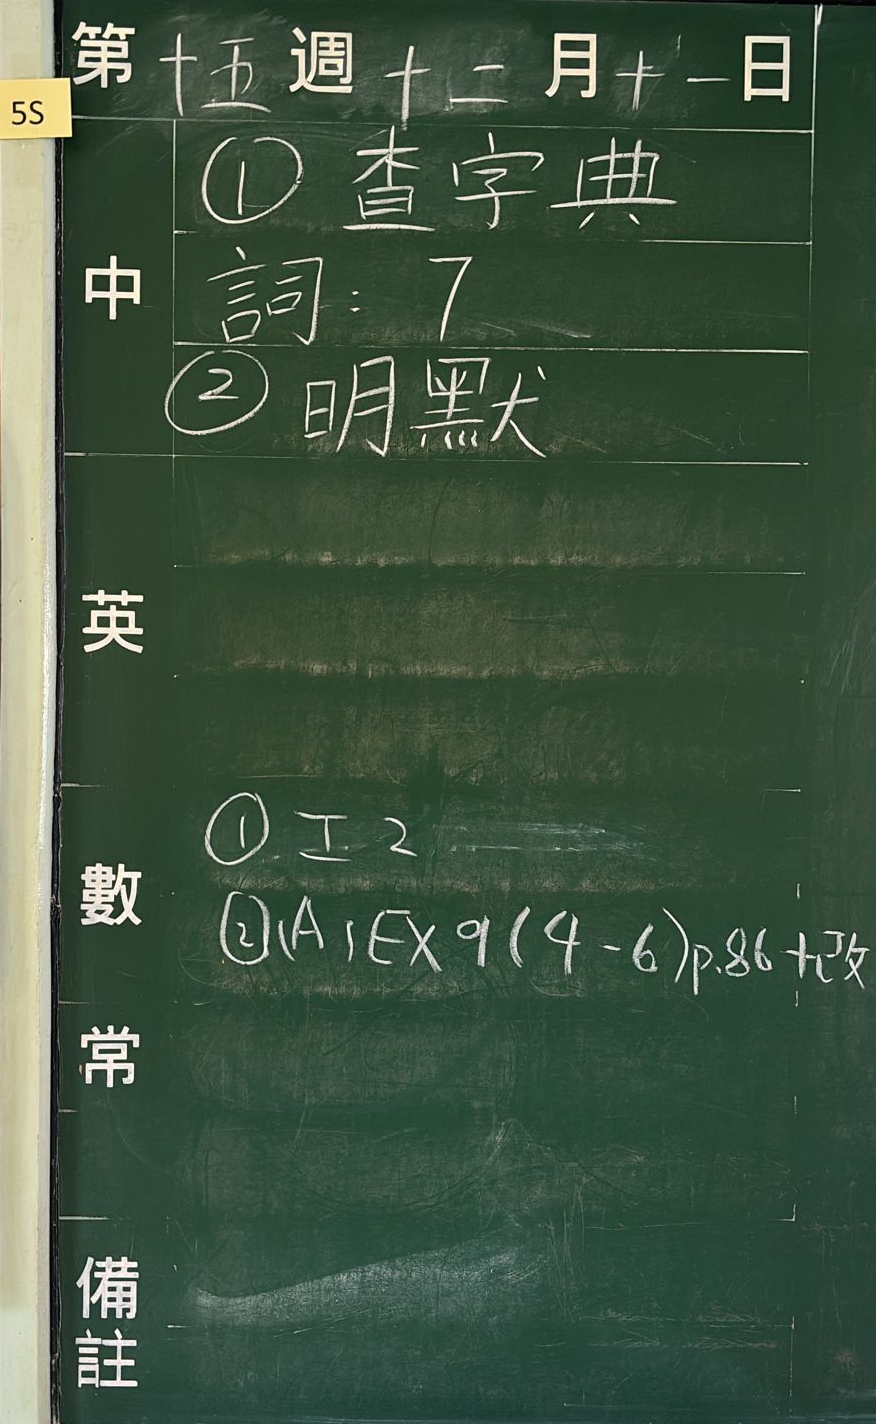 第十五週十二月十一日
5S
中
① 查字典
詞：7
② 明默
英
數
① 工2
②(A)Ex9(4-6)p.86+改
常
備註